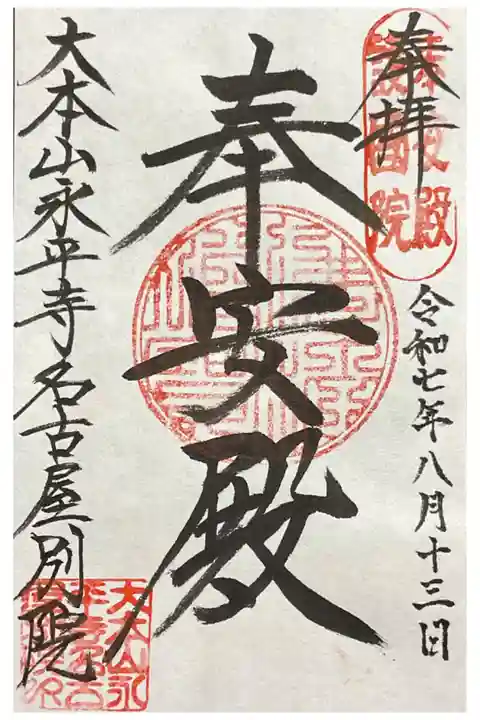 奉拝
奉安殿
護国院
令和七年八月十三日
奉安殿
大本山永平寺名古屋別院